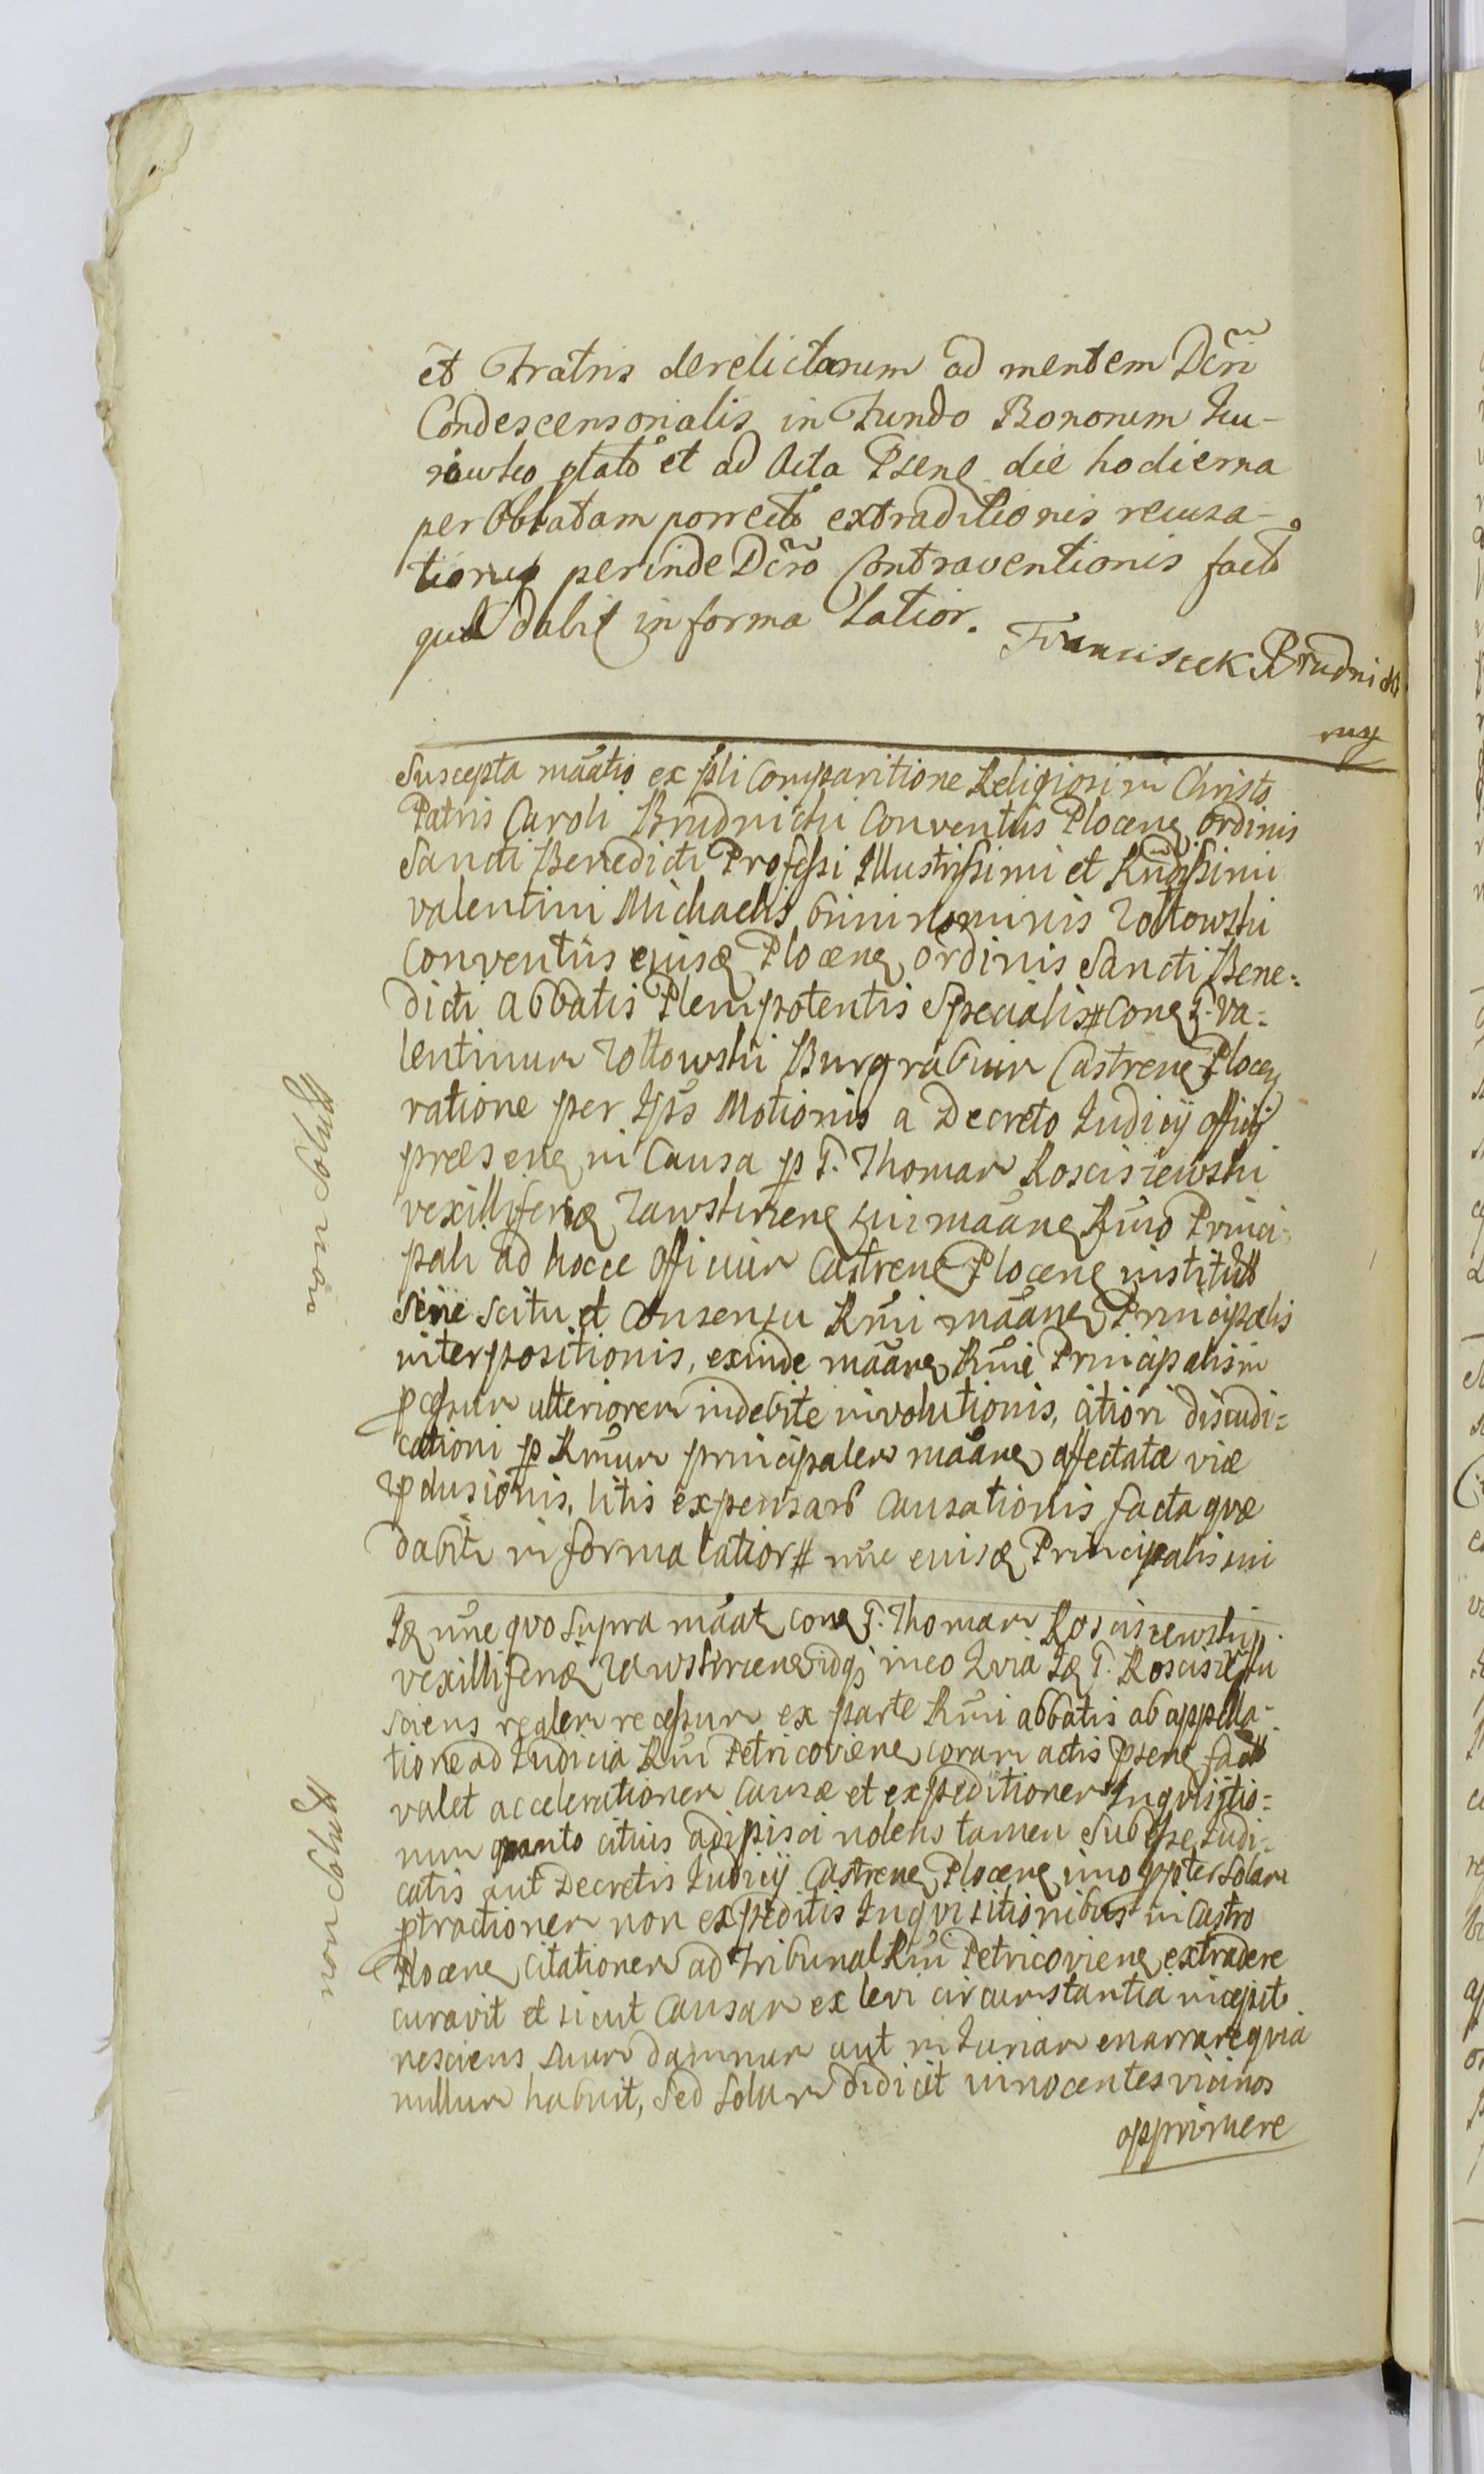 et Fratris derelictarum ad mentem Dcri
Condescensorialis in Fundo Bonorum Zu-
plato et ad Acta Psenę die hodierna
per Oblatam porrecto extraditionis recusa-
tionisq perinde Dcro Contraventionis facto
quæ dabit in forma Latior. Franciscek Brudnicki
mp
Suscepta maatio ex psli Comparitione Religiosi in Christo
Patris Caroli Brudnicki Conventus Plocenę Ordinis
Sancti Benedicti Professi Illustrissimi et Rndissimi
Valentini Michaelis bini nominis Zołtowski
Conventus eiusdę Plocenę ordinis Sancti Bene=
dicti abbatis Plenipotentis Specialis # Conę G. Va=
lentinum Zołtowski Burgrabium Castrenę Plocenę
ratione per Ips Motionis a Decreto Iudicij officij
præsenę in Causa p G. Thomam Rosciszewski
vexilliferidę Zawskrzenę sui maanę Rmo Princi=
pali ad hocce officium Castrenę Plocenę institut
sine scitu et Consensu Rmi maanę Principalis
interpositionis, exinde maanę Rmi Principalis in
pcessum ulteriorem indebite involutionis, citiori diiudi=
cationi p Rmum principalem maanę affectatæ viæ
pclusionis, litis expensarū causationis facta quæ
dabit in forma latior # nne eiusdę Principalis sui
non Solutt
Idę nne quo supra maat conę G. Thomam Rosciszewski
vexilliferidę Zawskrzenę idq ineo Quia Idę G. Rosciszewski
sciens realem recessum ex parte Rmi abbatis ab appella=
tione ad Iudicia Rni Petricovienę coram actis psenę fact
valet accelerationem Causæ et expeditionem Inquisitio=
num quanto citius adipisci nolens tamen Subesse Iudi=
catis aut Decretis Iudicij Castrenę Plocenę imo ppter Solam
ptractionem non expeditis Inquisitionibus in Castro
Plocenę Citationem ad Tribunal Rni Petricovienę extradere
curavit et sicut Causam ex levi circumstantia incepit
nesciens suum damnum aut iniuriam enarrare quia
nullum habuit, Sed Solum didicit innocentes vicinos
opprimere
non Solutt